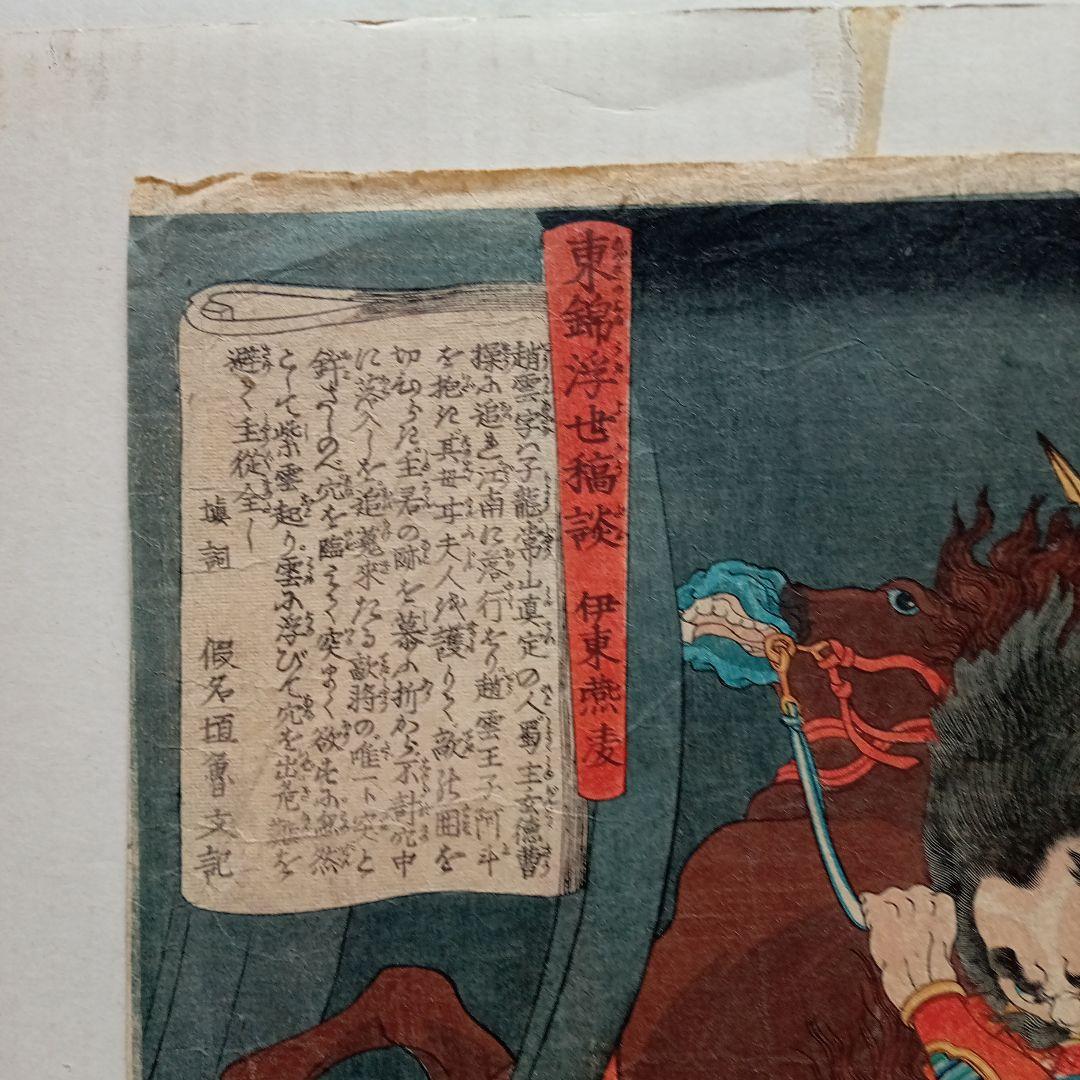 東錦浮世稿談
伊東燕凌
趙雲字ハ子龍常山真定の人蜀主玄徳曹
操に追れ江南に落行をり趙雲王子阿斗
を抱き其母芈夫人を護りて敵の囲を
切ひらき主君の跡を慕ふ折から不計穴中
に落入しを追蒐来たる敵将の唯一ト突と
鉾さしのべ穴を臨みて突まく欲せしに忽然
として紫雲起り雲に浮びて穴を出危難を
避て主従全し
填詞 假名垣魯文記